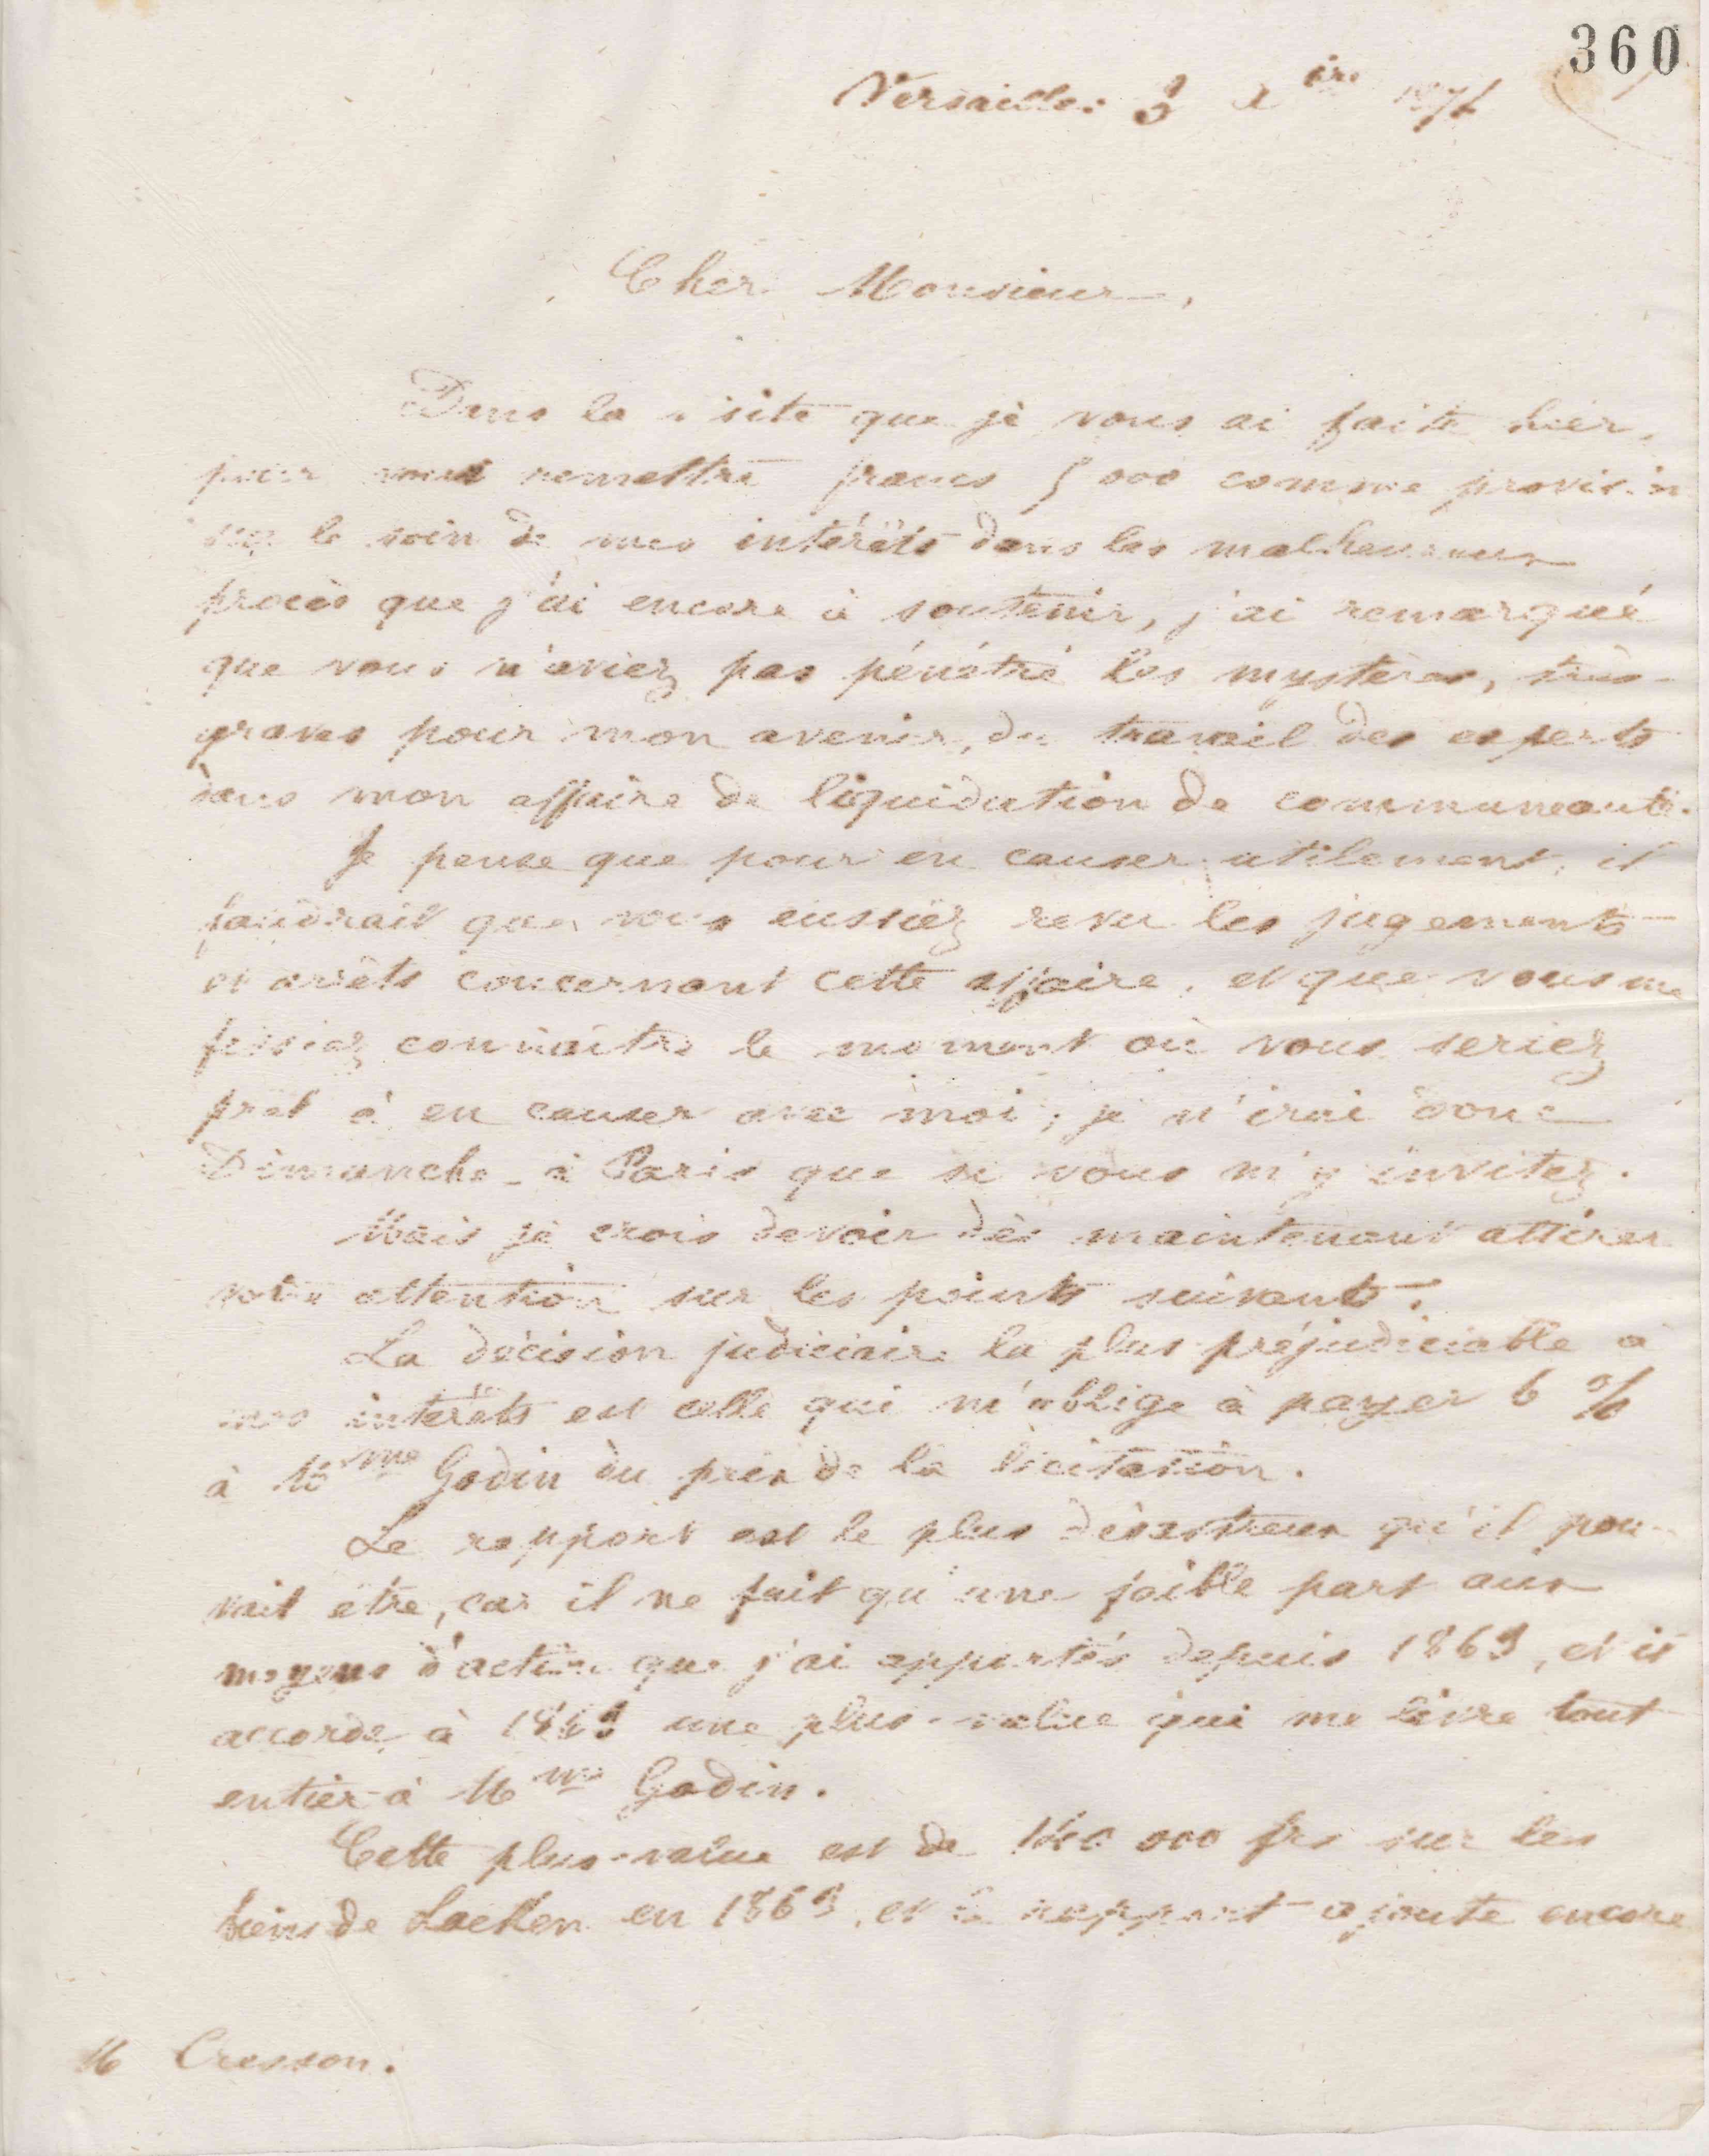 360
Versailles 3 Xbre 1874
Cher Monsieur,
Dans la visite que je vous ai faite hier,
pour vous remettre francs 5 000 comme provision
sur le soin de mes intérêts dans les malheureux
procès que j'ai encore à soutenir, j'ai remarqué
que vous n'aviez pas pénétré les mystères, très-
graves pour mon avenir, du travail des experts
dans mon affaire de liquidation de communauté.
Je pense que pour en causer utilement, il
faudrait que vous eussiez revu les jugements
et arrêts concernant cette affaire, et que vous me
fissiez connaître le moment où vous seriez
prêt à en causer avec moi ; je n'irai donc
Dimanche à Paris que si vous m'y invitez.
Mais je crois devoir dès maintenant attirer
votre attention sur les points suivants.
La décision judiciaire la plus préjudiciable à
mes intérêts est celle qui m'oblige à payer 6 %
à Mme Godin du prix de la licitation.
Le rapport est le plus désastreux qu'il pou-
vait être, car il ne fait qu'une faible part aux
moyens d'action que j'ai apportés depuis 1863, et il
accorde à 1863 une plus-value qui me livre tout
entier à Mme Godin.
Cette plus-value est de 000 frs sur les
biens de Laeken en 1863, et le rapport ajoute encore
M Cresson.